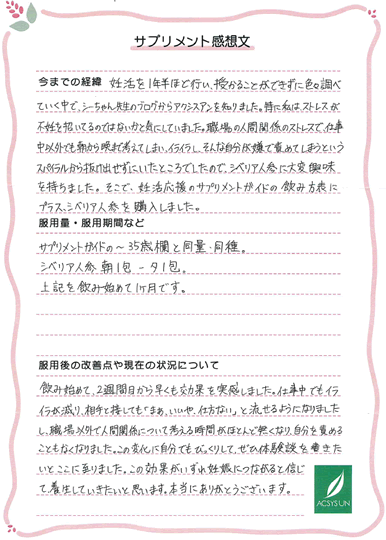 サプリメント感想文
今までの経緯 妊活を1年半ほど行い、授かることができずに色々調べ
ていく中で、シーちゃん先生のブログからアクシスアンを知りました。特に私はストレスが
不妊を招いてるのではないかと気にしていました。職場の人間関係のストレスで、仕事
中以外でも朝から晩まで考えてしまい、イライラし、そんな自分が嫌で責めてしまうという
スパイラルから抜け出せずにいたところでしたので、シベリア人参に大変興味
を持ちました。そこで、妊活応援のサプリメントガイドの飲み方表に
プラス、シベリア人参を購入しました。
服用量・服用期間など
サプリメントガイドの〜35歳欄と同量・同種。
シベリア人参 朝1包 - 夕1包。
上記を飲み始めて1ヶ月です。
服用後の改善点や現在の状況について
飲み始めて、2週間目から早くも効果を実感しました。仕事中でもイラ
イラが減り、相手と接しても「まぁ、いいや、仕方ない」と流せるようになりました
し、職場以外で人間関係について考える時間がほとんど無くなり、自分を責める
こともなくなりました。この変化に自分でもびっくりして、ぜひ体験談を書きた
いとここに至りました。この効果がいずれ妊娠につながると信じ
て、養生していきたいと思います。本当にありがとうございます。
ACSYSUN